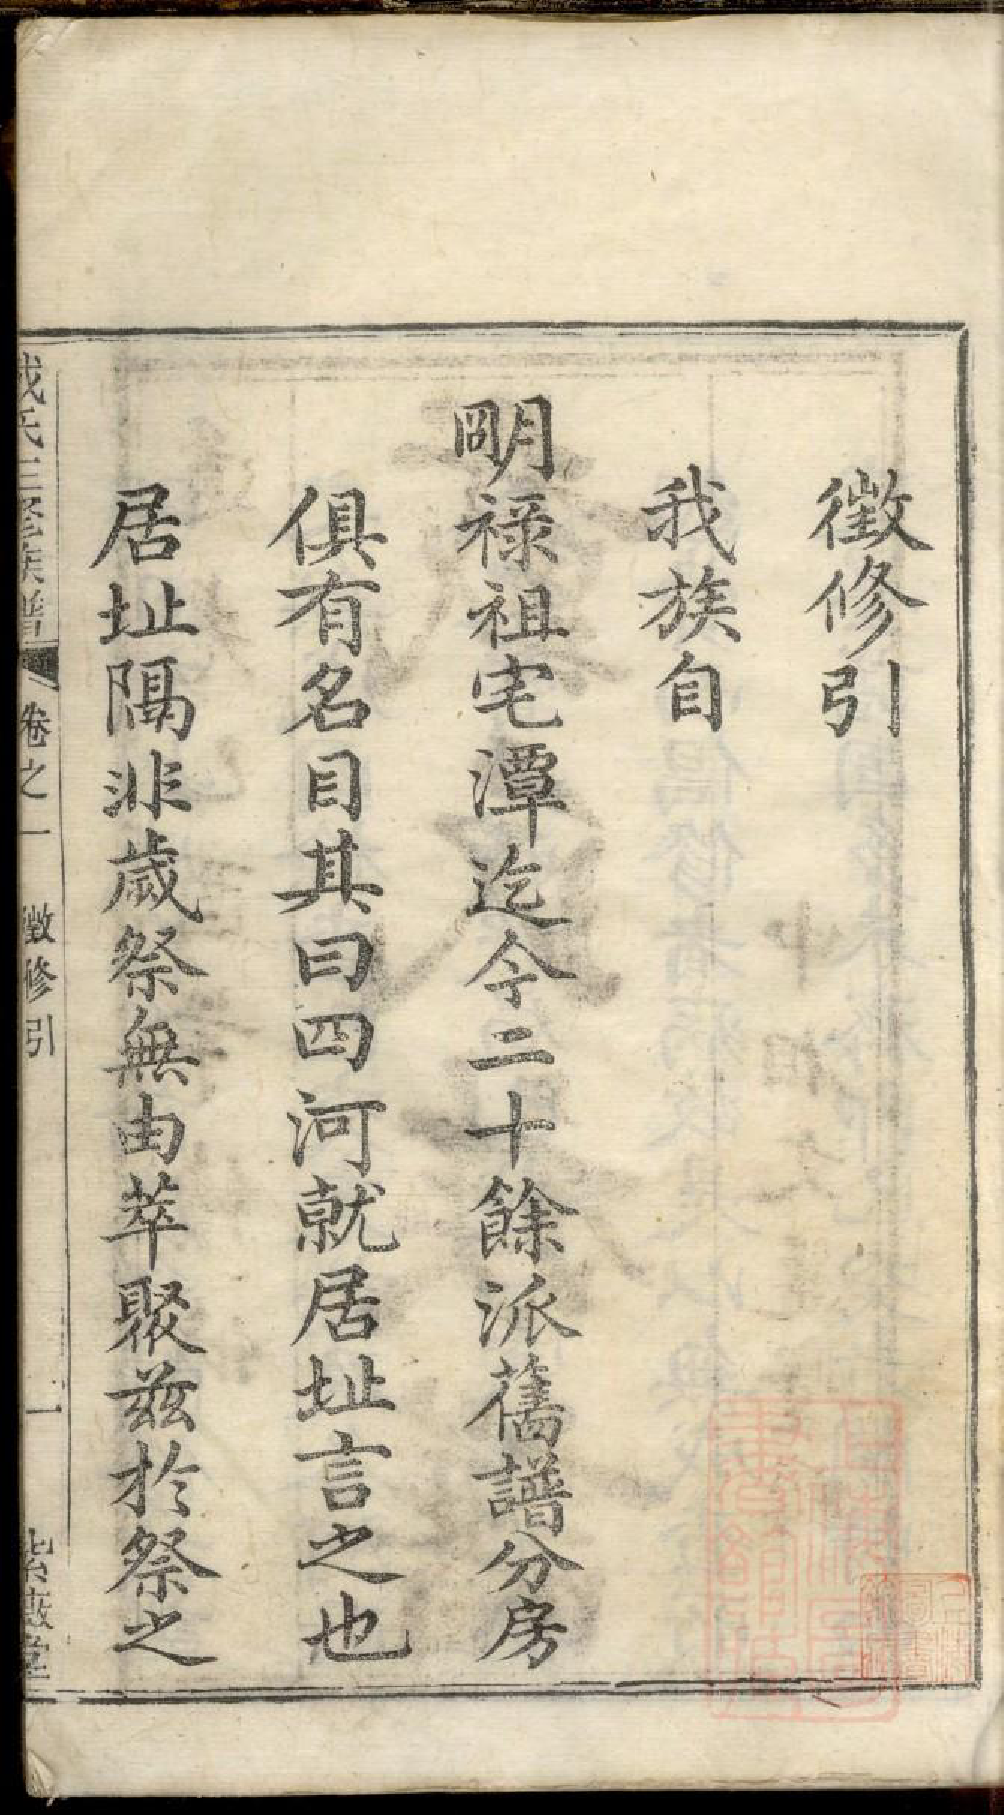 徵修引
我族自
明祿祖宅潭迄今二十餘派舊譜分房
俱有名目其曰四河就居址言之也
居址隔非歲祭無由萃聚茲於祭之
氏三修族譜 卷之一 徵修引 一